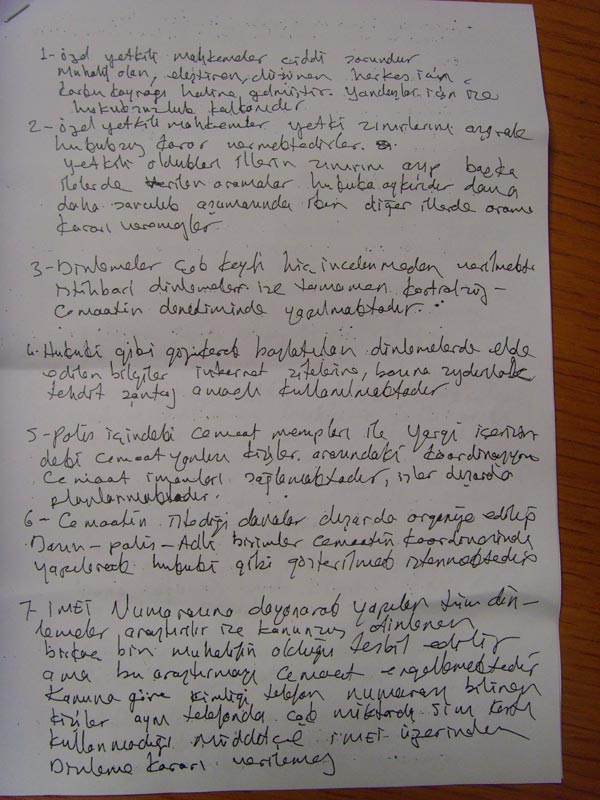 1- özel yetkili mahkemeler ciddi sorundur
muhalif olan, eleştiren, düşünen herkes için
korku kaynağı haline gelmiştir. Yandaşlar için ise
hukuksuzluk kalkanıdır
2- özel yetkili mahkemler yetki sınırlarını aşarak
hukuksuz karar vermektedirler.
yetkili oldukları illerin sınırını aşıp başka
illerde verilen aramalar hukuka aykırıdır dava
daha savcılık aşamasında iken diğer illerde arama
kararı veremezler
3- Dinlemeler çok keyfi hiç incelenmeden verilmekte
istihbari dinlemeler ise tamamen kontrolsüz -
Cemaatin denetiminde yapılmaktadır.
4. Hukuki gibi gözükerek başlatılan dinlemelerde elde
edilen bilgiler internet sitelerine, basına sızdırılarak
tehdit şantaj amaçlı kullanılmaktadır
5- polis içindeki cemaat mensupları ile yargı içerisin
deki cemaat yanlısı kişiler arasındaki koordinasyonu
Cemaat imamları sağlamaktadır, işler dışarda
planlanmaktadır.
6- Cemaatin istediği davalar dışarda organize edilip
Basın - polis - Adli birimler cemaatin koordinesinde
yapılarak hukuki gibi gösterilmek istenmektedir
7- IMEI Numarasına dayanarak yapılan tüm din-
lemeler araştırılır ise kanunsuz dinlenen
birkaç bin muhalifin olduğu tesbit edilir
ama bu araştırmayı cemaat engellemektedir
Kanuna göre kimliği telefon numarası bilinen
kişiler aynı telefonda çok miktarda sim kart
kullanmadığı müddetçe imei üzerinden
Dinleme kararı verilemez